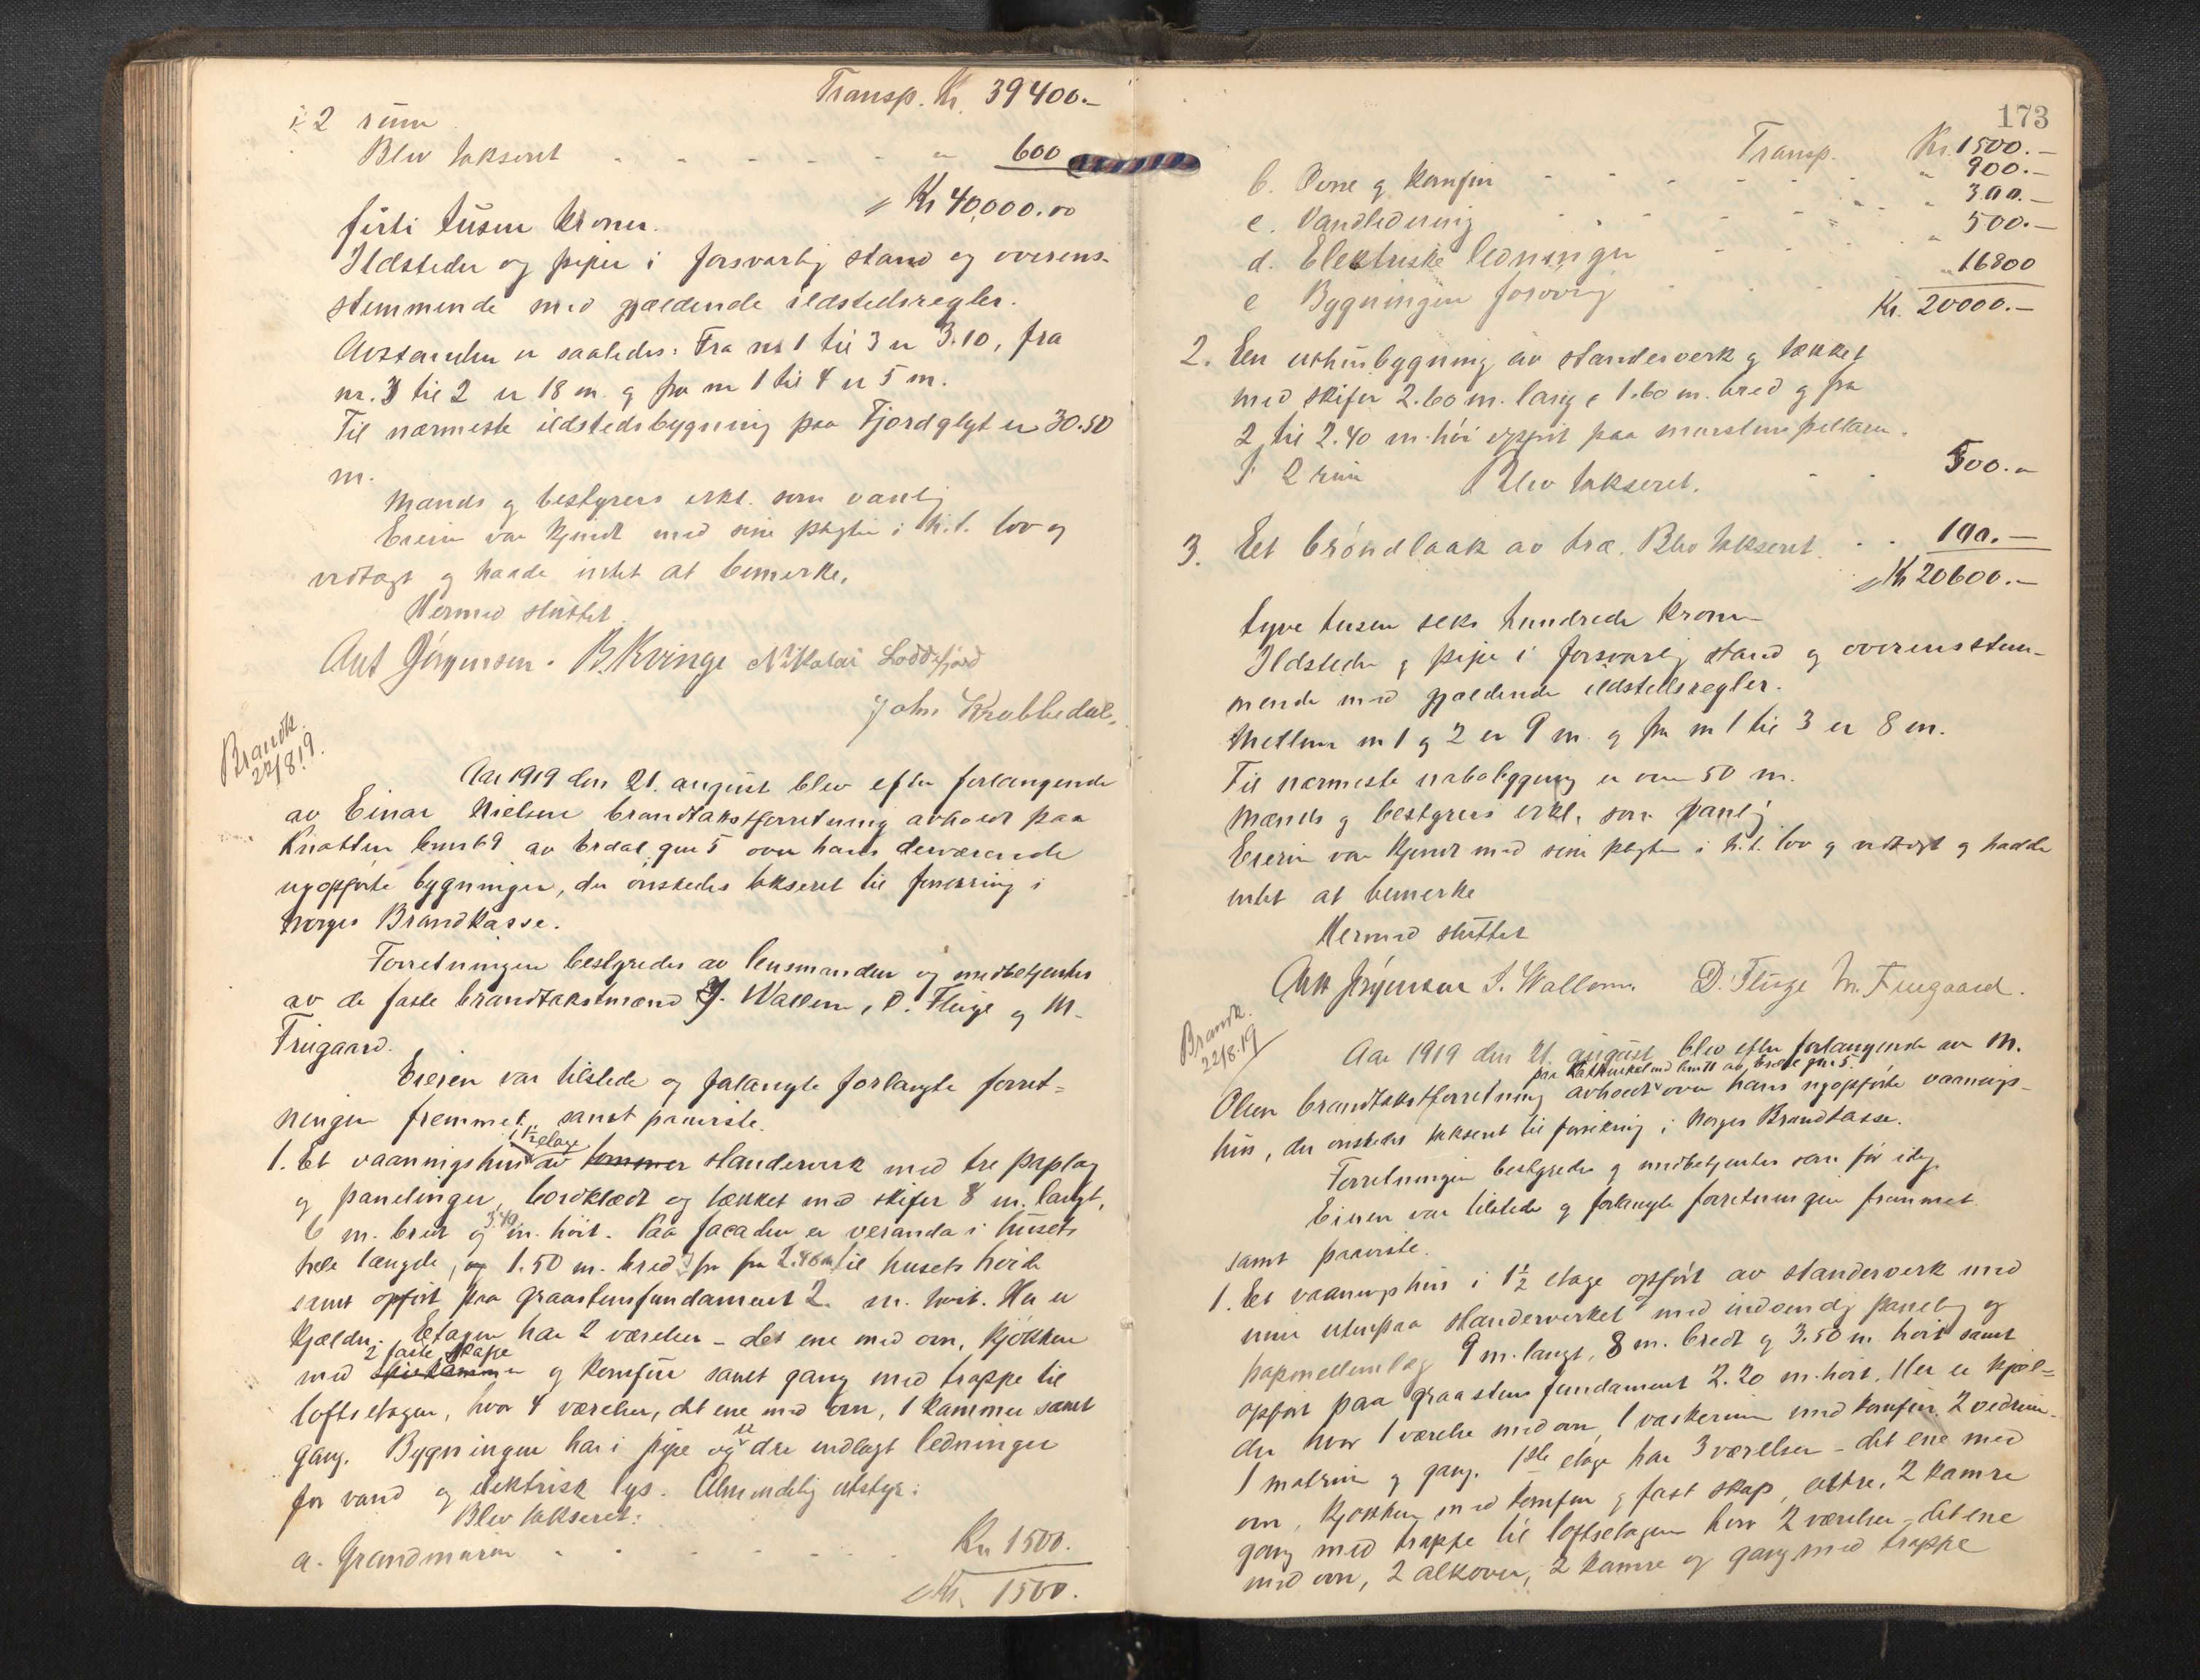 Transp. Kr. 39400.-
i 2 rum
Blev takseret - - - - - " 600
Kr 40,000.00
førti tusen kroner.
Ildsteder og piper i forsvarlig stand og overens-
stemmende med gjældende ildstedsregler.
Avstanden er saaledes: Fra nr 1 til 3 er 3.10, fra
nr. 3 til 2 er 18 m. g fra nr 1 til 4 er 5 m.
Til nærmeste ildstedsbygning paa Fjordglyt er 30.50
m.
Mænds g bestyrers erkl. som vanlig
Eieren var kjendt med sine pligter i h.t. lov og
vedtægt g hadde intet at bemerke.
Hermed sluttet
Ant Jørgensen. B. Kvinge Nikolai Loddefjord
John Krabbedal.
Brandk.
22/8.19.
Aar 1919 den 21. august blev efter forlangende
av Einar Nielsen brandtakstforretning avholdt paa
Knatten bnr 69 av Erdal, gnr 5 over hans derværende
nyopførte bygninger, der ønskedes takseret til forsikring i
Norges Brandkasse.
Forretningen bestyredes av lensmanden og medbetjentes
av de faste brandtakstmænd J. Wallem, D. Fluge g M.
Friegaard.
Eieren var tilstede og forlangte forret=
ningen fremmet, samt paaviste.
1. Et vaaningshus i 1½ etage av tømmer standerverk med tre paplag
g panelinger, bordklædt og tækket med skifer 8 m. langt,
6 m. bredt og 3.40 m. høit. Paa facaden er veranda i husets
hele længde, og 1.50 m. bred g fra 2.40 m til husets høide
samt opført paa graastensfundament 2. m. høit. Her er
kjælder. Etagen har 2 værelser - det ene med ovn, kjøkken
med 2 faste skape spiskammer g komfur samt gang med trappe til
loftsetagen, hvor 4 værelser, det ene med ovn, 1 kammer samt
gang. Bygningen har 1 pipe og er indlagt ledninger
for vand og elektrisk lys. Almindelig utstyr.
Blev takseret:
a. Grundmuren - - - - - Kr 1500.
Kr. 1500.
173
Transp. Kr. 1500.-
b. Ovne g komfur - - - - - " 900.-
c. Vandledning - - - - - " 300.-
d. Elektriske ledninger - - - " 500.-
e Bygningen forøvrig - - - " 16800
Kr. 20000.-
2. Een uthusbygning av standerverk g tækket
med skifer 2.60 m. lang 1.60 m. bred g fra
2 til 2.40 m. høi opført paa murstenspillarer.
I 2 rum Blev takseret. - - 500.-
3. Et brøndlaak av træ. Blev takseret. - - 100.-
Kr 20600.-
tyve tusen seks hundrede kroner
Ildsteder g pipe i forsvarlig stand g overensstem-
mende med gjældende ildstedsregler.
Mellem nr 1 g 2 er 9 m. g fra nr 1 til 3 er 8 m.
Til nærmeste nabobygning er over 50 m.
Mænds g bestyrers erkl. som vanlig
Eieren var kjendt med sine pligter i h.t. lov g vedtægt g hadde
intet at bemerke
Hermed sluttet
Ant Jørgensen J. Wallem. D. Fluge M. Friegaard.
Brandk.
22/8.19
Aar 1919 den 21. august blev efter forlangende av M.
Olsen brandtakstforretning avholdt paa av Erdal gnr 5 over hans nyopførte vaanings-
hus, der ønskedes takseret til forsikring i Norges Brandkasse.
Forretningen bestyredes g medbetjentes som før idag.
Eieren var tilstede g forlangte forretningen fremmet
samt paaviste.
1. Et vaaningshus i 1½ etage opført av standerverk med
mur utenpaa standerverket med indvendig paneling og
papmellemlæg 9 m. langt, 8 m. bredt g 3.50 m. høit samt
opført paa graastens fundament 2.20 m. høit. Her er kjæl=
der hvor 1 værelse med ovn, 1 vaskerum med komfur, 2 vedrum-
1 matrum g gang. 1ste etage har 3 værelser - det ene med
ovn, kjøkken med komfur g fast skap, 2 kamre
gang med trappe til loftsetagen hvor 2 værelser - det ene
med ovn, 2 alkover, 2 kamre og gang med trappe